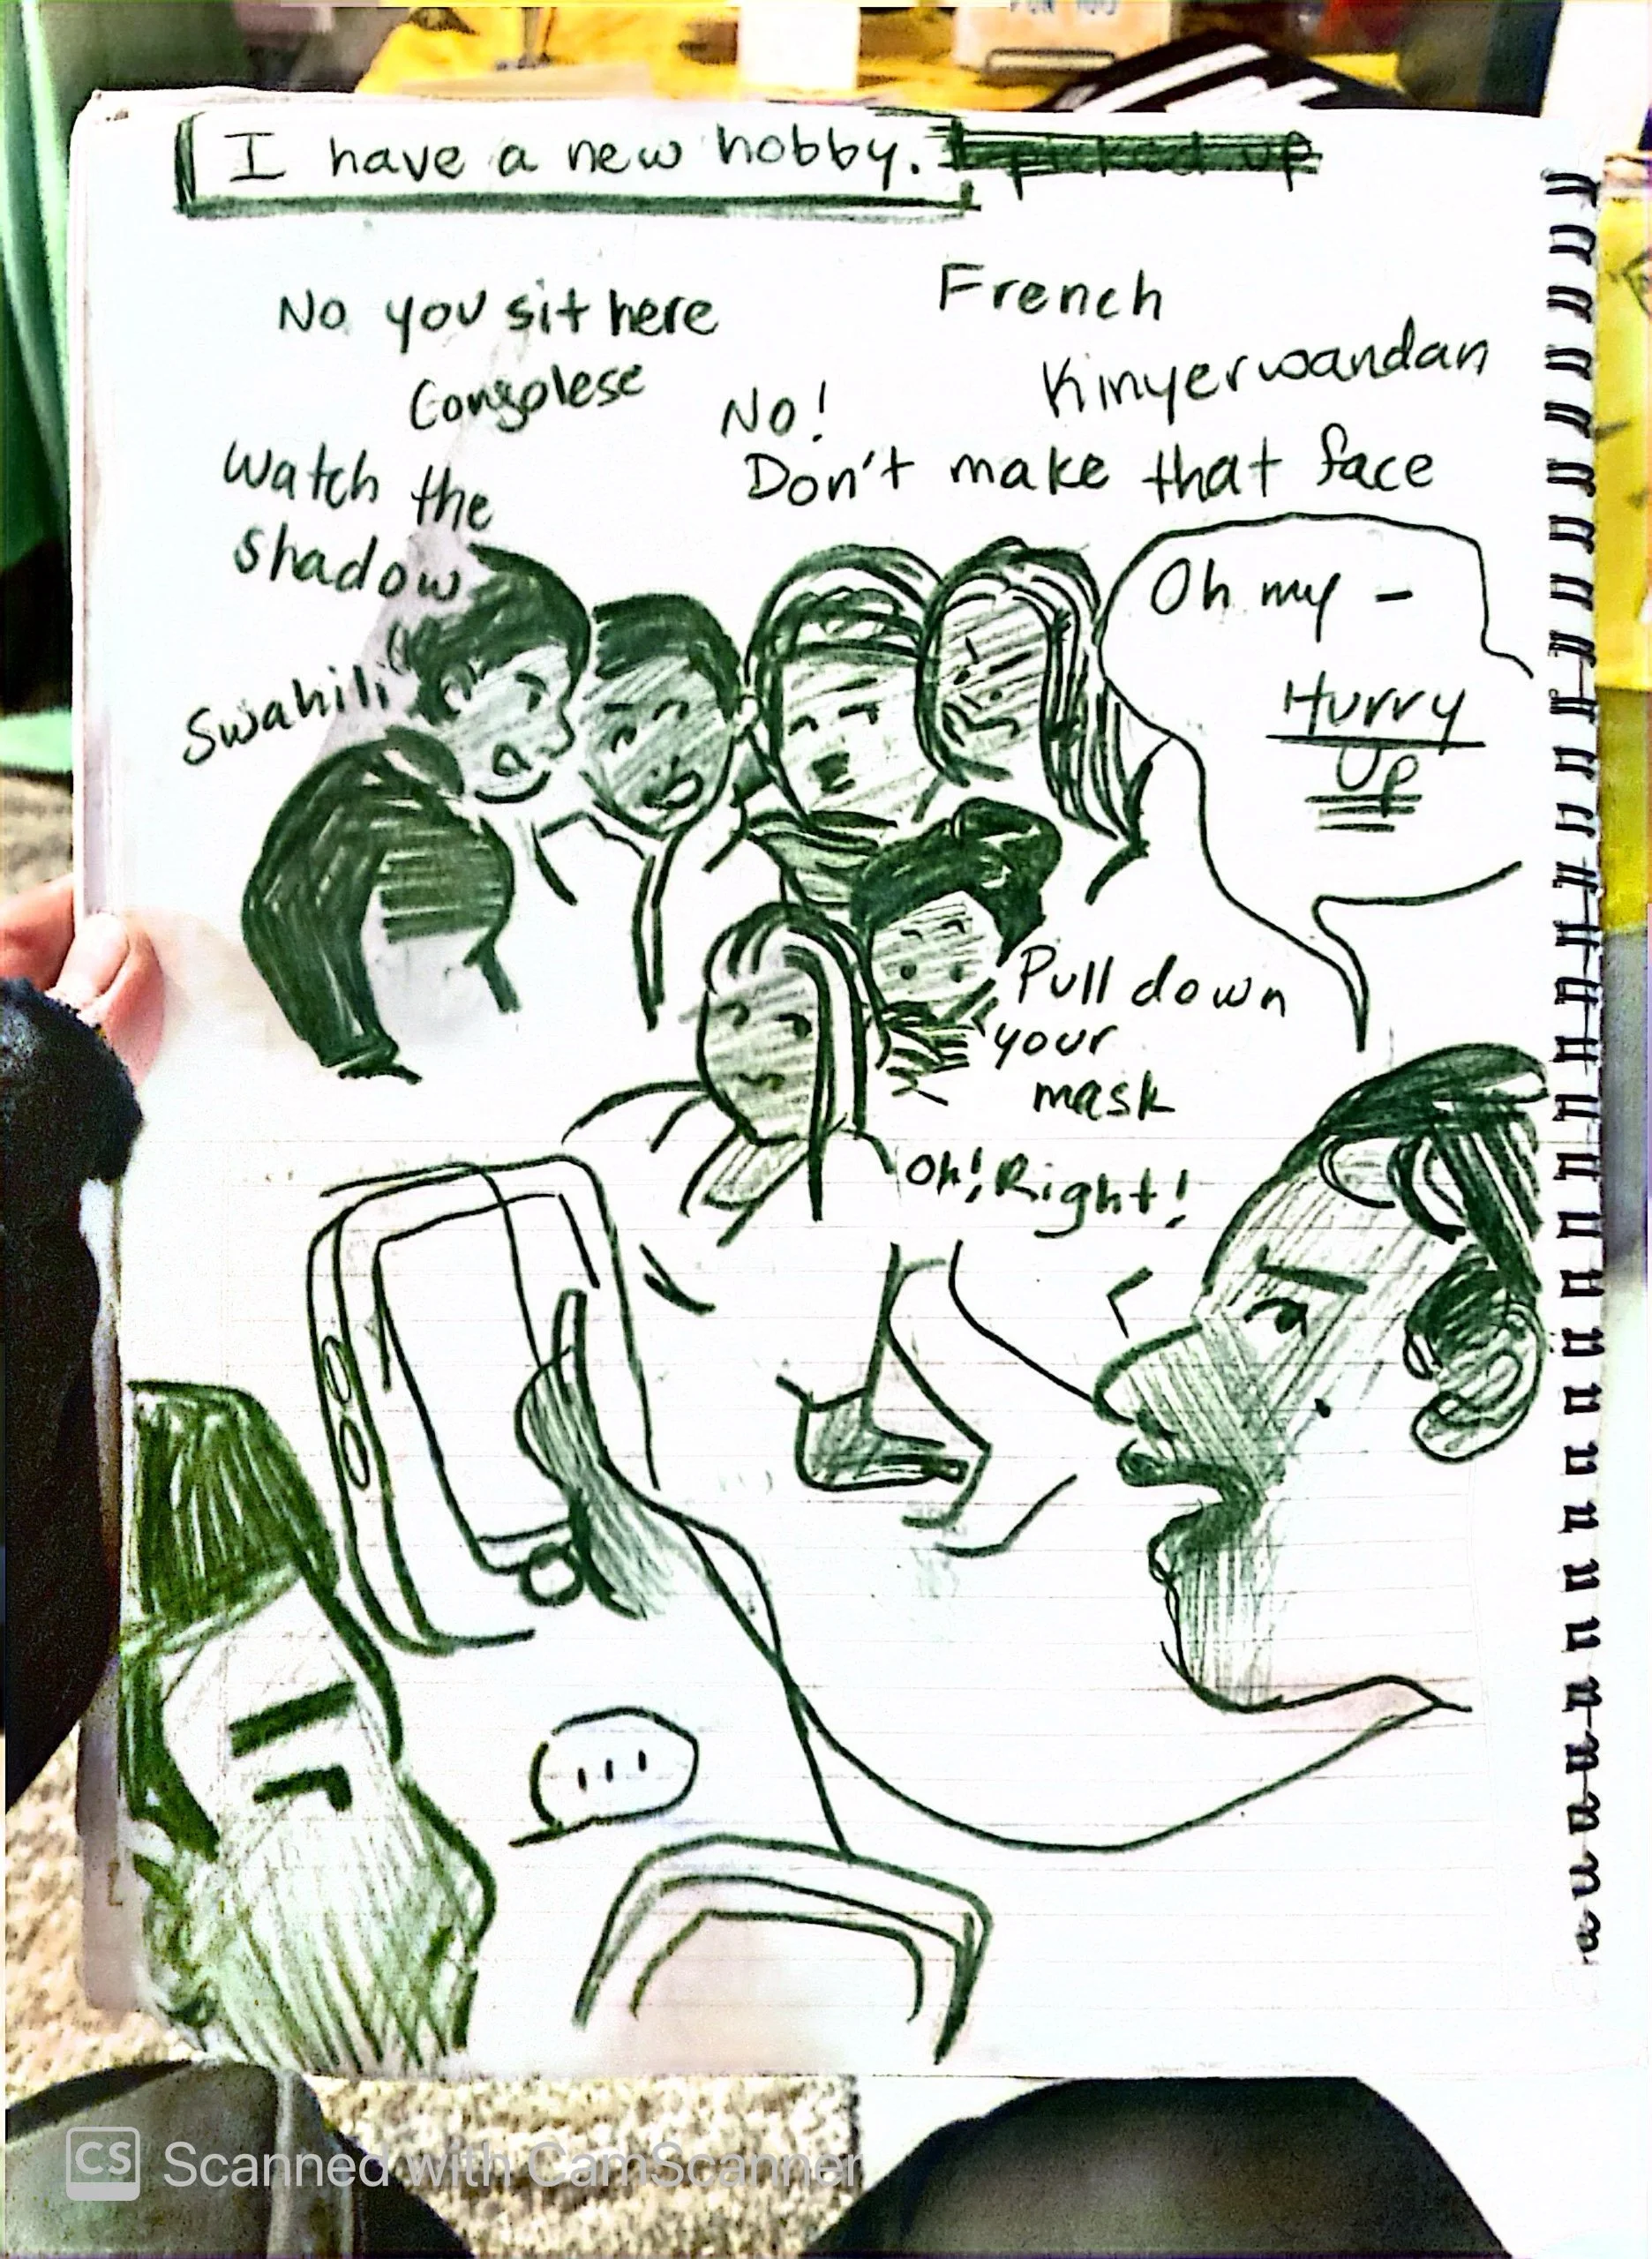 I have a new hobby.
No you sit here
Congolese
French
Kinyerwandan
No!
Don't make that face
Watch the
shadow
Swahili
Oh my -
Hurry
Up
Pull down
your
mask
Oh! Right!
...
CS Scanned with CamScanner